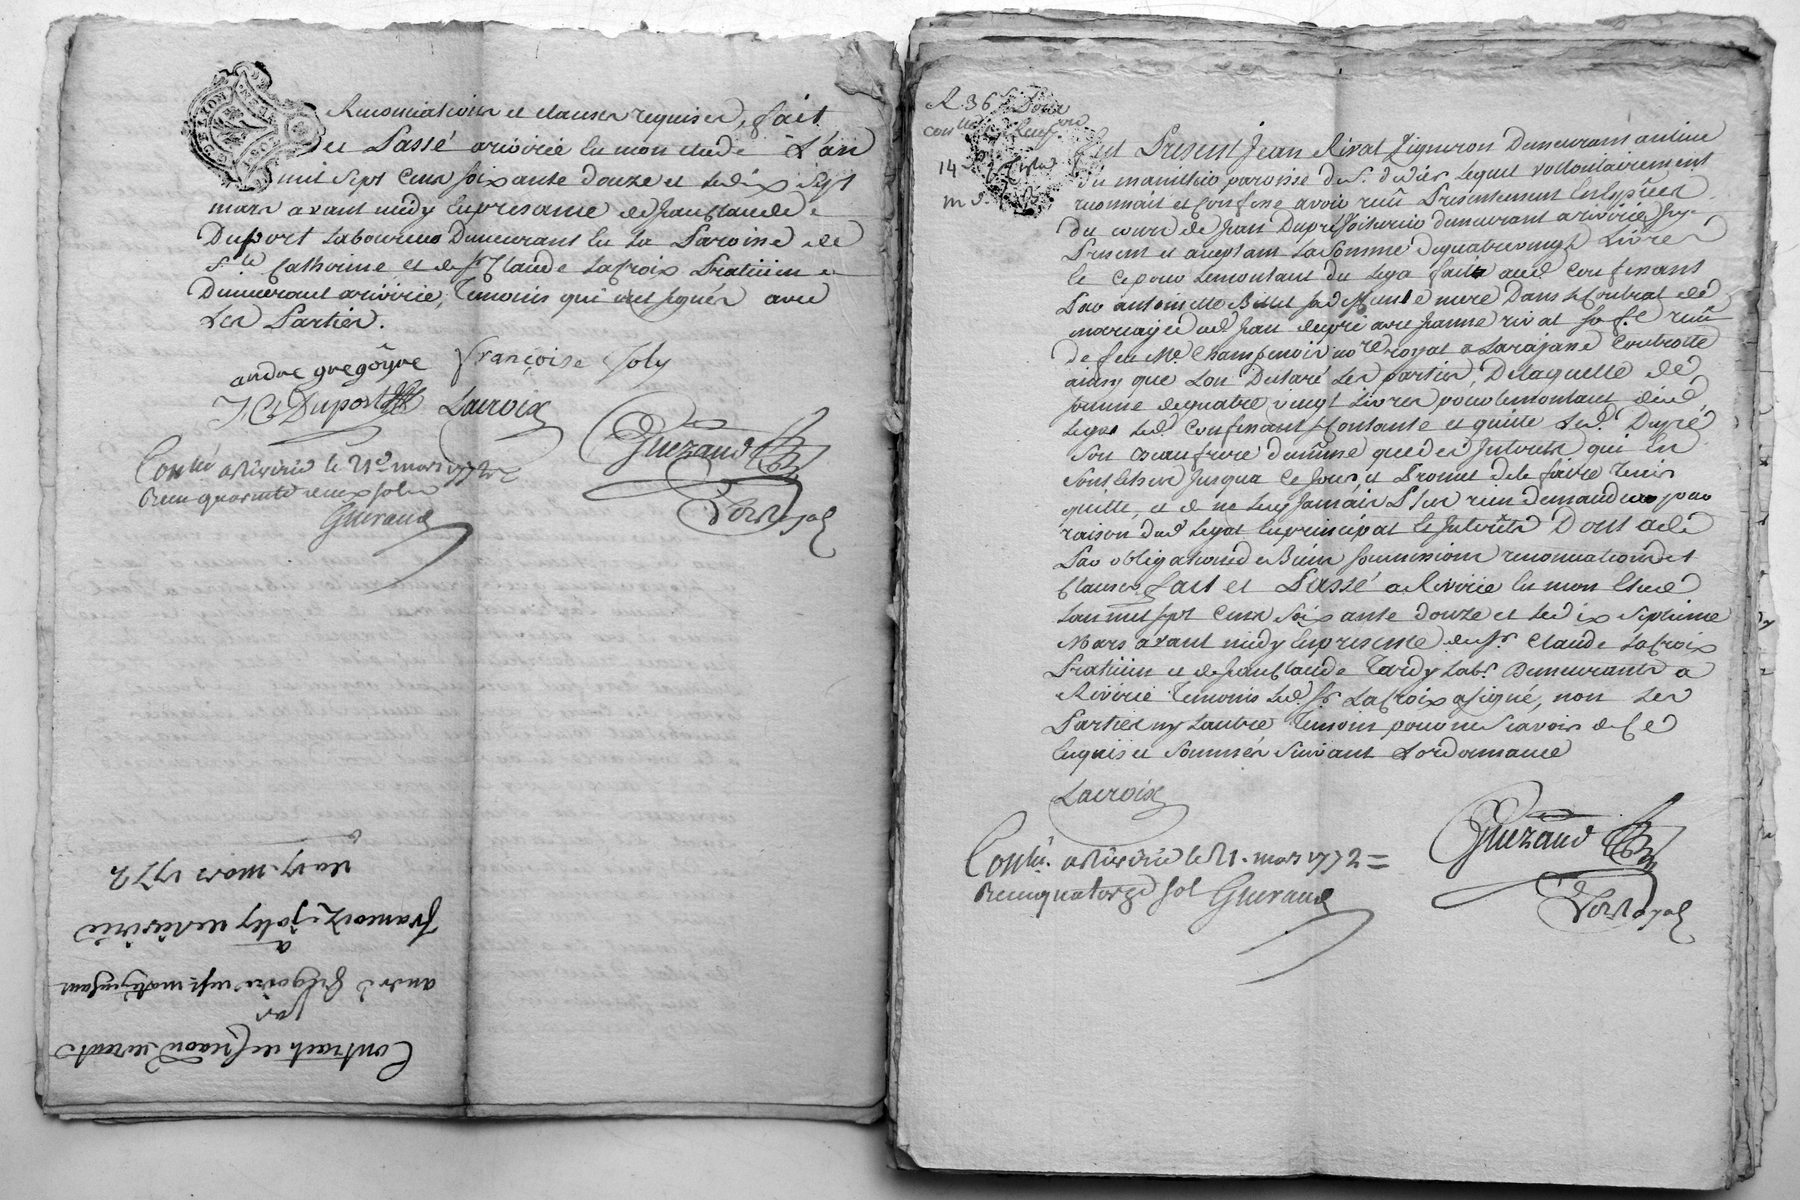 Renonciations et clauses requises, fait
et Passé a riverie en mon etude L'an
mil sept cens soixante douze et le dix sept
mars avant midy en presence de Jean Claude
Duport Laboureur Demeurant en la Paroisse de
Ste Catherine et de Sr Claude Lacroix Praticien
Demeurant a riverie, Temoins qui ont signés avec
Les Parties.
andre gregoyre françoise Joly
J C Duport Lacroix Guezaud
Conlé a Riverie le 21e mars 1772
Reçu quarante deux sols
Guiraud
Nore Royal
Contract de
par
andré Grégoire
a
francoize joly de riverie
du 17 mars 1772
R. 36
14
Est Present Jean Rival Vigneron Demeurant au lieu
du paroisse de St didier Lequel vollontairement
reconnait et confesse avoir reçu Presentement en Espèces
du cours de Jean Dupré demeurant a riverie icy
Present et acceptant La Somme de quatrevingt Livres
et ce pour Le montant du Legs fait aud confessant
Par antoinette sa mere Dans le Contrat de
mariage de Jean dupré avec Jeanne rival reçu
de feu Me Champenois nore royal a Larajasse Controllé
ainsy que L'ont Declaré Les parties, De laquelle
somme de quatre vingt Livres pour le montant dud
Legs Led Confessant se contente et quitte Led. Dupré
son beaufrere de même que des Interets qui en
sont échus jusqua ce jour, et Promet de le faire tenir
quitte, et de ne Luy jamais Plus rien demander pour
raison dud Legat en principal et Interêts Dont acte
Par obligations de Biens soumissions renonciations et
Clauses fait et Passé a Riverie en mon Etude
Lan mil sept Cens Soixante douze et Le dix Septieme
Mars avant midy en presence de Sr Claude Lacroix
Praticien et de Jean Claude Tardy Labr Demeurants a
Riverie Temoins Led. Sr Lacroix a signé, non Les
Parties ny Lautre Temoin pour ne Scavoir de ce
Enquis et Sommés Suivant L'ordonnance
Lacroix
Guezaud
Conlé. a Riverie le 21. mars 1772
Recu quatorze sol Guiraud
Nore Royal